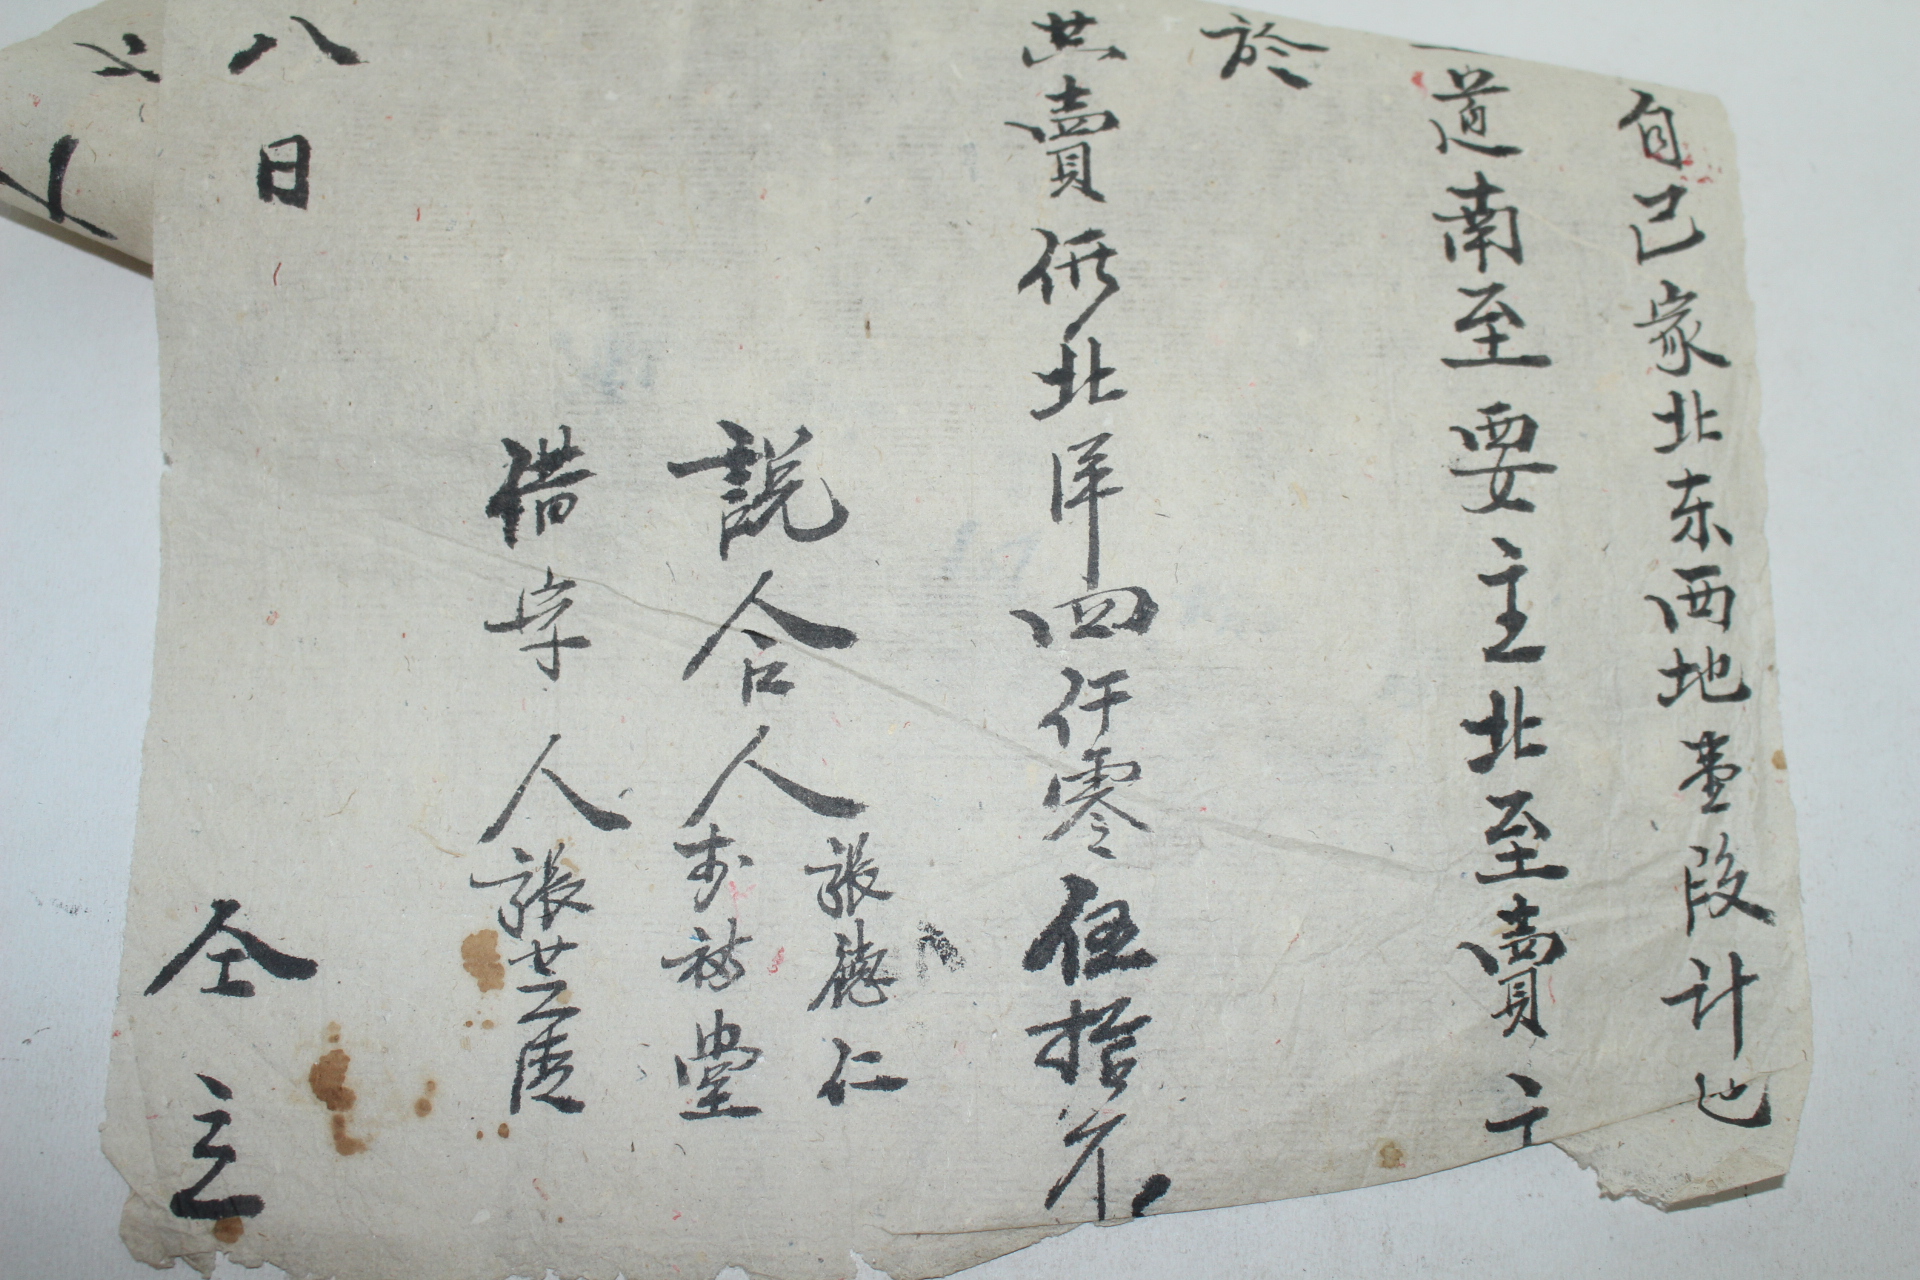 自己家北东西地壹段计地
道南至要主北至賣主
於
共賣價北洋四仟零伍拾元
張德仁
說合人
堂
借字人張芝
八日 仝立